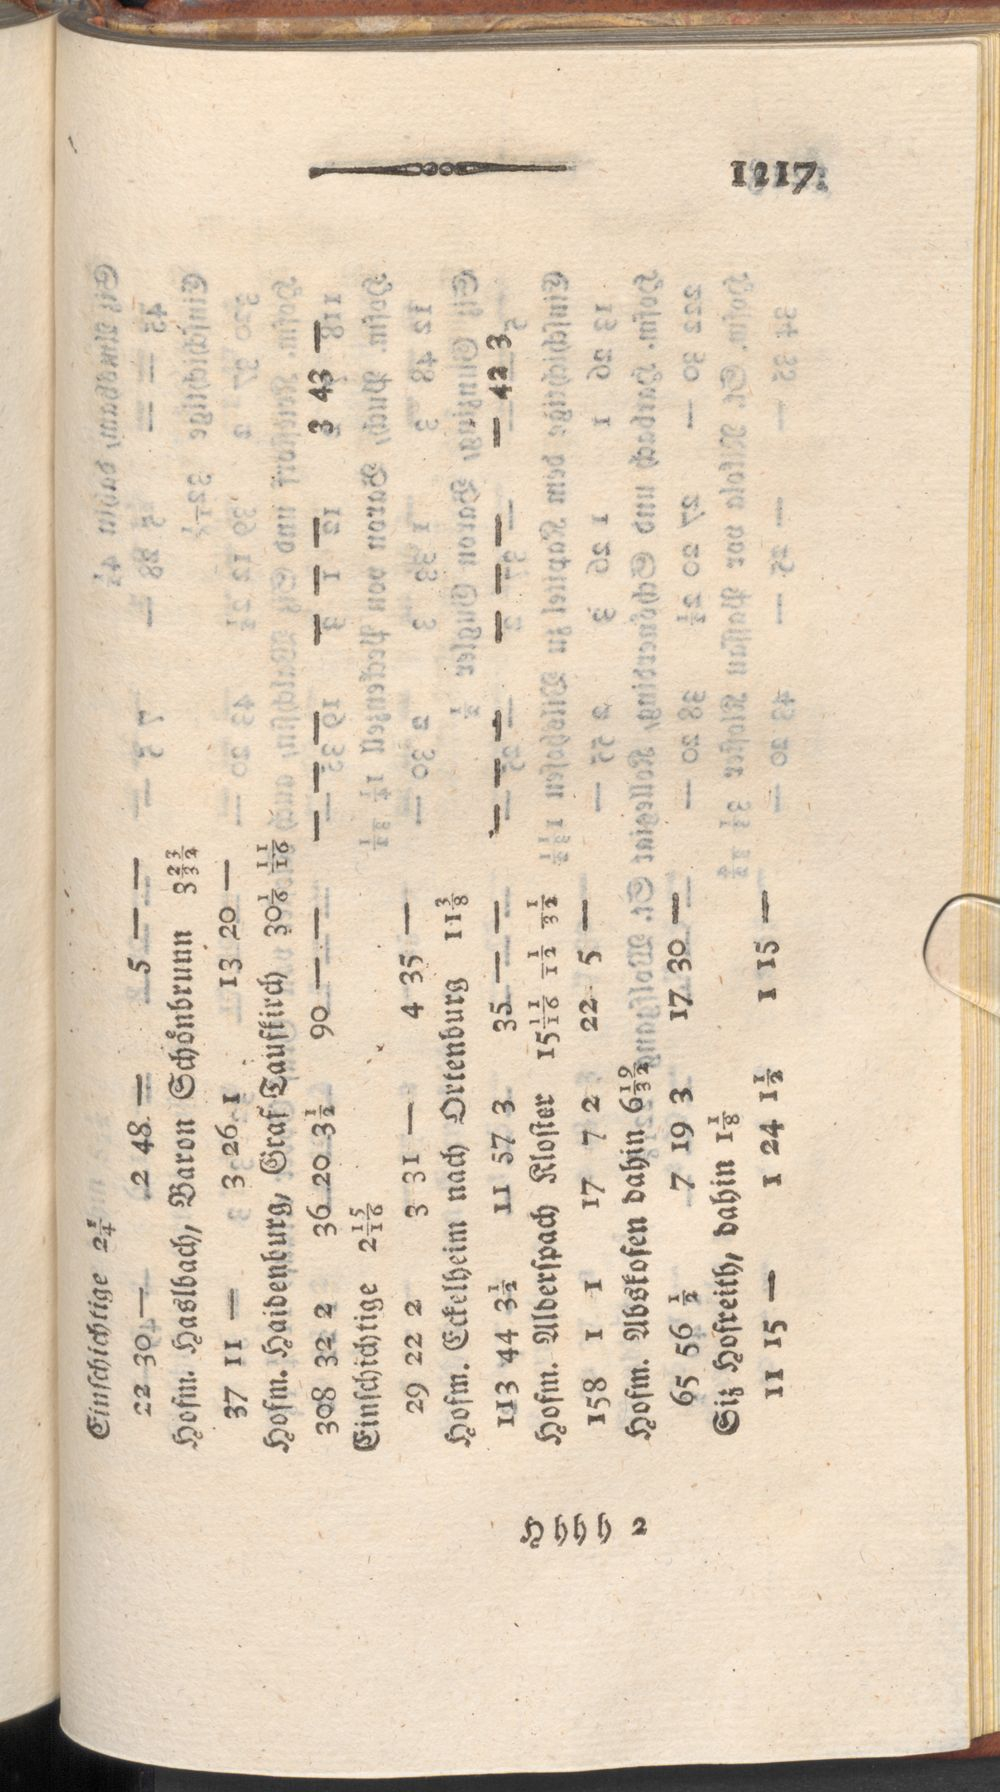 1217
Einschichtige 2 3/4
22 30 — 2 48 — 5 — —
Hofm. Haslbach, Baron Schönbrunn 3 23/32
37 11 — 3 26 1 13 20 —
Hofm. Haidenburg, Graf Taufkirch 30 1/6 11/16
308 32 2 36 20 3 1/2 90 — — — — — — 1 — 3 43 —
Einschichtige 2 15/16
29 22 2 3 31 — 4 35 —
Hofm. Eckelheim nach Ortenburg 11 3/8
113 44 3 1/2 11 57 3 35 — — — — — — — — — 42 3
Hofm. Alderspach Kloster 15 11/16 1/12 1/32
158 1 1 17 7 2 22 5 —
Hofm. Abskofen dahin 6 19/32
65 56 1/2 7 19 3 17 30 —
Siz Hofreith, dahin 1 1/8
11 15 — 1 24 1 1/2 1 15 —
Hhhh 2